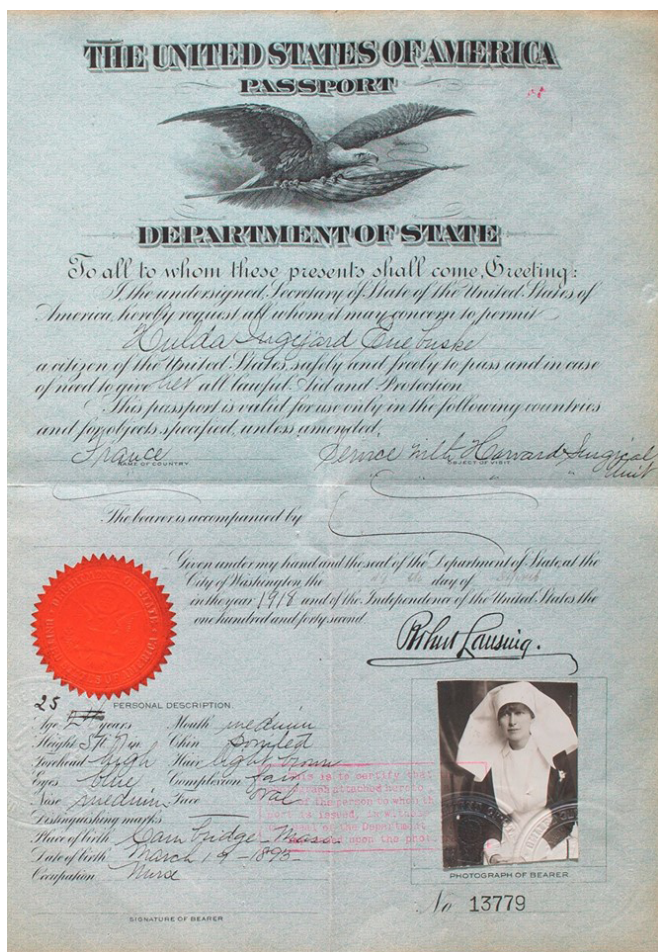 THE UNITED STATES OF AMERICA
PASSPORT
DEPARTMENT OF STATE
To all to whom these presents shall come, Greeting:
I, the undersigned, Secretary of State of the United States of
America, hereby request all whom it may concern to permit
Hulda Ingegard Enebuske
a citizen of the United States, safely and freely to pass and in case
of need to give her all lawful Aid and Protection
This passport is valid for use only in the following countries
and for objects specified, unless amended,
France
Service with Harvard Surgical
Unit
NAME OF COUNTRY
OBJECT OF VISIT
The bearer is accompanied by
Given under my hand and the seal of the Department of State, at the
City of Washington, the
day of
in the year 1918 and of the Independence of the United States the
one hundred and forty second.
Robert Lansing.
25
PERSONAL DESCRIPTION.
Age years Mouth medium
Height 5 ft 7 in Chin pointed
Forehead high Hair light brown
Eyes blue Complexion fair
Nose medium Face oval
Distinguishing marks
Place of birth Cambridge Mass.
Date of birth March 19 - 1893 -
Occupation Nurse
This is to certify that
photograph attached hereto
of the person to whom th
port is issued, in witness
seal of the Department
upon the phot
SIGNATURE OF BEARER
PHOTOGRAPH OF BEARER.
No 13779